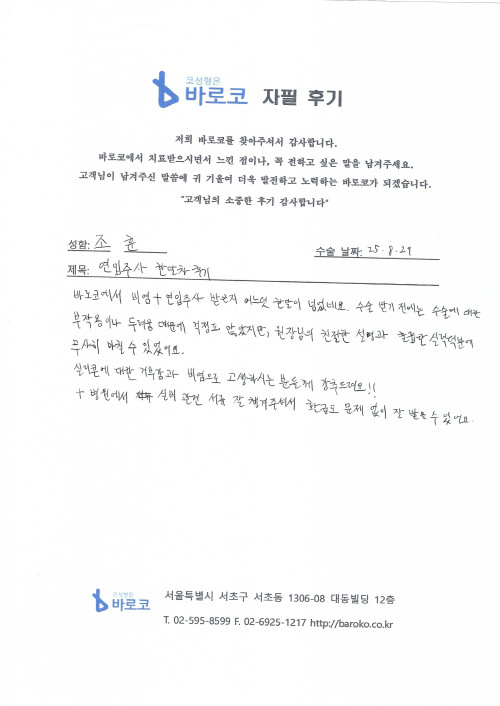 코성형은
바로코 자필 후기
저희 바로코를 찾아주셔서 감사합니다.
바로코에서 치료받으시면서 느낀 점이나, 꼭 전하고 싶은 말을 남겨주세요.
고객님이 남겨주신 말씀에 귀 기울여 더욱 발전하고 노력하는 바로코가 되겠습니다.
"고객님의 소중한 후기 감사합니다"
성함: 조 훈 수술 날짜: 25.8.29
제목: 연입주사 한달차 후기
바로코에서 비염+연입주사 받은지 어느덧 한달이 넘었네요. 수술 받기 전에는 수술에 대한
부작용이나 두려움 때문에 걱정도 많았지만, 원장님의 친절한 설명과 훌륭한 실력덕분에
무사히 마칠 수 있었어요.
실리콘에 대한 거부감과 비염으로 고생하시는 분들께 강추드려요!!
+ 병원에서 실비 관련 서류 잘 챙겨주셔서 환급도 문제 없이 잘 받을 수 있었어요.
코성형은
바로코
서울특별시 서초구 서초동 1306-08 대동빌딩 12층
T. 02-595-8599 F. 02-6925-1217 http://baroko.co.kr